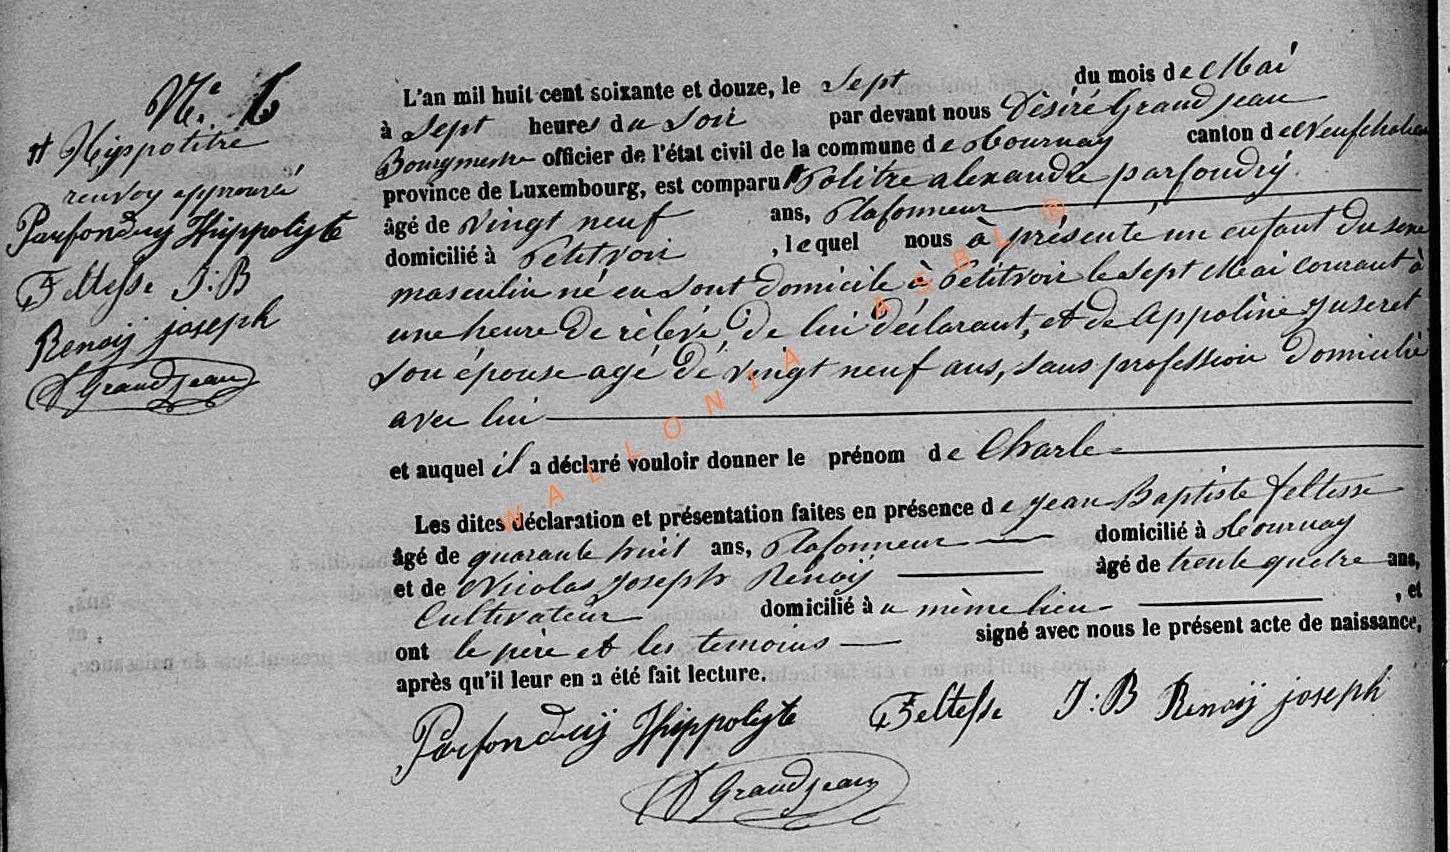 Nº 6
# Hyppolitre
renvoy approuvé
Parfondrÿ Hippolyte
Feltesse J:B
Renoÿ joseph
D Grandjean
L'an mil huit cent soixante et douze, le Sept du mois de Mai
à Sept heures du Soir par devant nous Dèsiré Grandjean
Bourgmestre officier de l'état civil de la commune de Tournay canton de Neufchateau
province de Luxembourg, est comparu # Politre alexandre parfondrÿ.
âgé de vingt neuf ans, Plafonneur
domicilié à Petitvoir , lequel nous à présenté un enfant du sexe
masculin né en sont domicile à Petitvoir le sept Mai courant à
une heure de rèlevé, de lui déclarant, et de Appoline Juseret
son épouse agé de vingt neuf ans, sans profession domicilié
avec lui
et auquel il a déclaré vouloir donner le prénom de Charle
Les dites déclaration et présentation faites en présence de jean Baptiste feltesse
âgé de quarante huit ans, Plafonneur domicilié à Tournay
et de Nicolas Joseph Renoÿ âgé de trente quatre ans,
Cultivateur domicilié à u mème lieu , et
ont le père et les temoins signé avec nous le présent acte de naissance,
après qu'il leur en a été fait lecture.
Parfondrÿ Hippolyte Feltesse J:B Renoÿ joseph
D Grandjean
WALLONIA ASBL ®